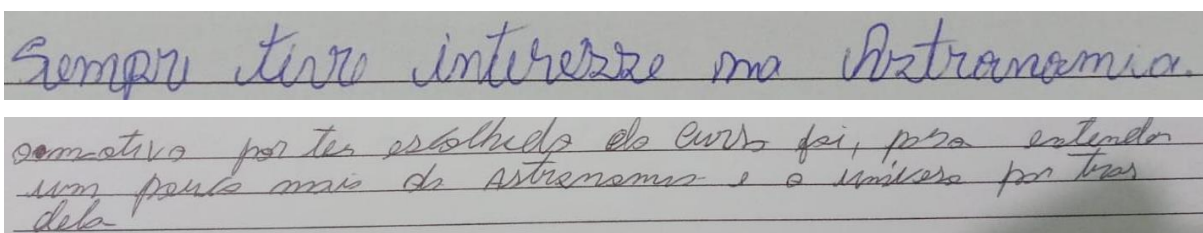 Sempre tive interesse na Astronomia.
o motivo por ter escolhido do curso foi, para entender
um pouco mais da Astronomia e o universo por tras
dela